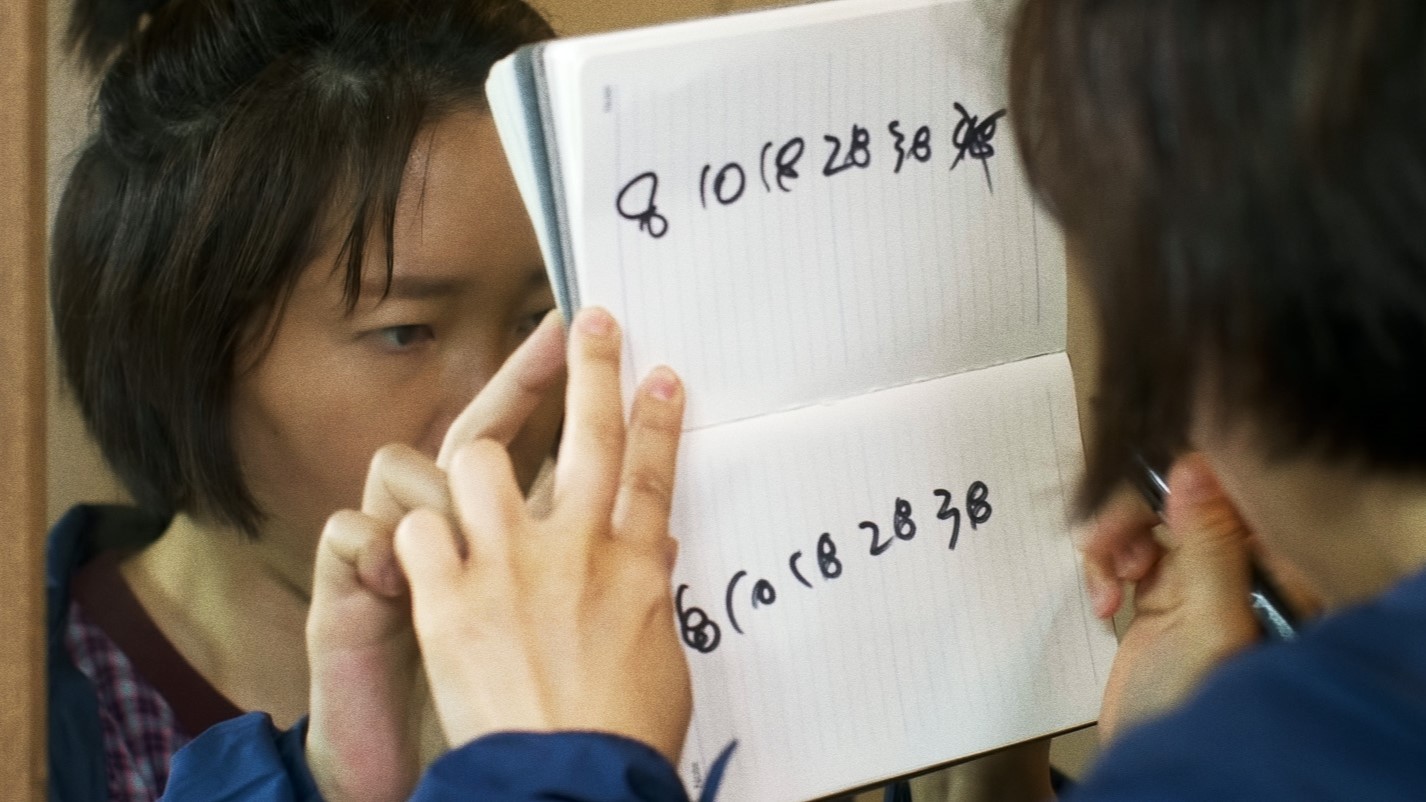 8 10 18 28 38
8 10 18 28 38
Note